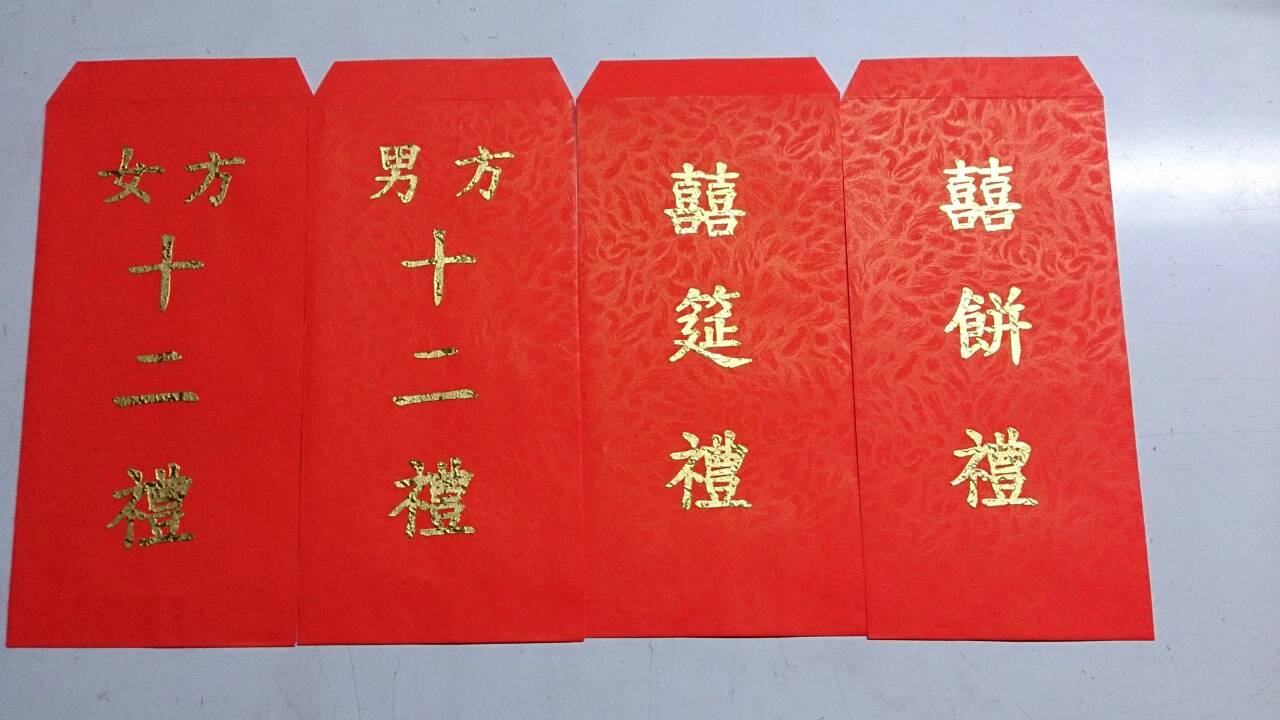 女方
十二禮
男方
十二禮
囍筵禮
囍餅禮